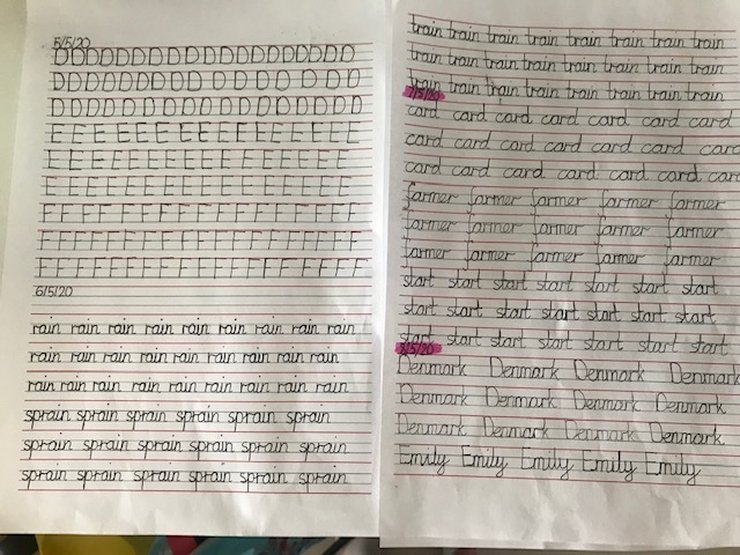 5/5/20
D D D D D D D D D D D D D D D D D D D D
D D D D D D D D D D D D D D D D D
D D D D D D D D D D D D D D D D D D D
E E E E E E E E E E E E E E E E E E
E E E E E E E E E E E E E E E E E
E E E E E E E E E E E E E E E E E
F F F F F F F F F F F F F F F F F F F
F F F F F F F F F F F F F F F F F F F
F F F F F F F F F F F F F F F F F F F
6/5/20
rain rain rain rain rain rain rain rain rain
rain rain rain rain rain rain rain rain rain
rain rain rain rain rain rain rain rain rain
sprain sprain sprain sprain sprain sprain
sprain sprain sprain sprain sprain sprain
sprain sprain sprain sprain sprain sprain
train train train train train train train train
train train train train train train train train
train train train train train train train train
7/5/20
card card card card card card card
card card card card card card card
card card card card card card card
farmer farmer farmer farmer farmer
farmer farmer farmer farmer farmer
farmer farmer farmer farmer farmer
start start start start start start start
start start start start start start start
start start start start start start start
8/5/20
Denmark Denmark Denmark Denmark
Denmark Denmark Denmark Denmark
Denmark Denmark Denmark Denmark
Emily Emily Emily Emily Emily